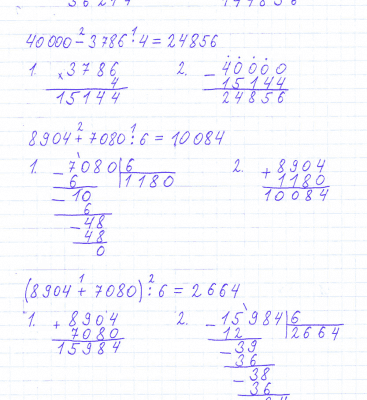 40000 - 3786 · 4 = 24856
2 1
1. × 3786
4
15144
2. - 40000
15144
24856
8904 + 7080 : 6 = 10084
2 1
1. - 7080 | 6
6 | 1180
- 10
6
- 48
48
0
2. + 8904
1180
10084
(8904 + 7080) : 6 = 2664
1 2
1. + 8904
7080
15984
2. - 15984 | 6
12 | 2664
- 39
36
- 38
36